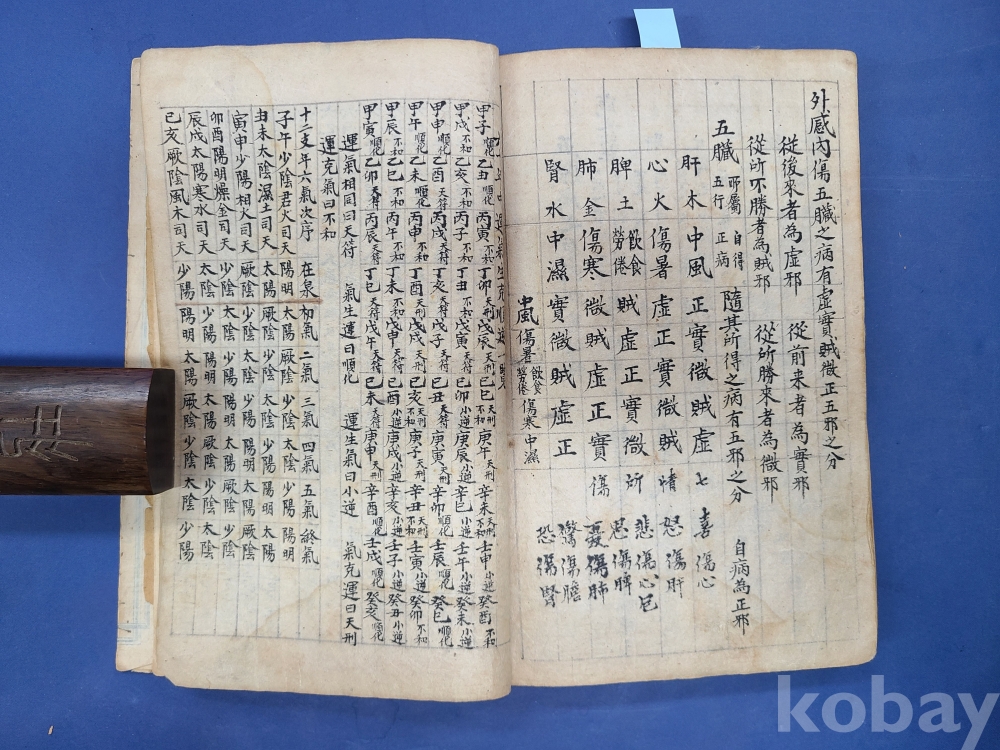 外感內傷五臟之病有虛實賊微正五邪之分
從後來者為虛邪 從前來者為實邪
從所不勝者為賊邪 從所勝來者為微邪 自病為正邪
五臟 所屬五行 自得正病 隨其所得之病有五邪之分
肝木中風正實微賊虛 七 喜傷心
心火傷暑虛正實微賊 情 怒傷肝
悲傷心包
脾土飲食勞倦賊虛正實微 所 思傷脾
肺金傷寒微賊虛正實 傷 憂傷肺
驚傷膽
腎水中濕實微賊虛正 恐傷腎
中風傷暑飲食勞倦傷寒中濕
甲子順化乙丑順化丙寅不和丁卯天刑戊辰天刑己巳不和庚午天刑辛未不和壬申小逆癸酉不和
甲戌不和乙亥不和丙子不和丁丑不和戊寅不和己卯小逆庚辰小逆辛巳不和壬午小逆癸未小逆
甲申順化乙酉天符丙戌天符丁亥天符戊子天符己丑天符庚寅不和辛卯小逆壬辰不和癸巳順化
甲午順化乙未順化丙申不和丁酉天刑戊戌天刑己亥不和庚子天刑辛丑不和壬寅小逆癸卯不和
甲辰不和乙巳不和丙午不和丁未不和戊申天符己酉小逆庚戌小逆辛亥小逆壬子小逆癸丑小逆
甲寅順化乙卯天符丙辰天符丁巳天符戊午天符己未天符庚申天符辛酉順化壬戌順化癸亥順化
運氣相同曰天符 氣生運曰順化 運生氣曰小逆 氣克運曰天刑
運克氣曰不和
十二支年六氣次序 在泉 初氣 二氣 三氣 四氣 五氣 終氣
子午少陰君火司天 陽明 太陽 厥陰 少陰 太陰 少陽 陽明
丑未太陰濕土司天 太陽 厥陰 少陰 太陰 少陽 陽明 太陽
寅申少陽相火司天 厥陰 少陰 太陰 少陽 陽明 太陽 厥陰
卯酉陽明燥金司天 少陰 太陰 少陽 陽明 太陽 厥陰 少陰
辰戌太陽寒水司天 太陰 少陽 陽明 太陽 厥陰 少陰 太陰
巳亥厥陰風木司天 少陽 陽明 太陽 厥陰 少陰 太陰 少陽
kobay